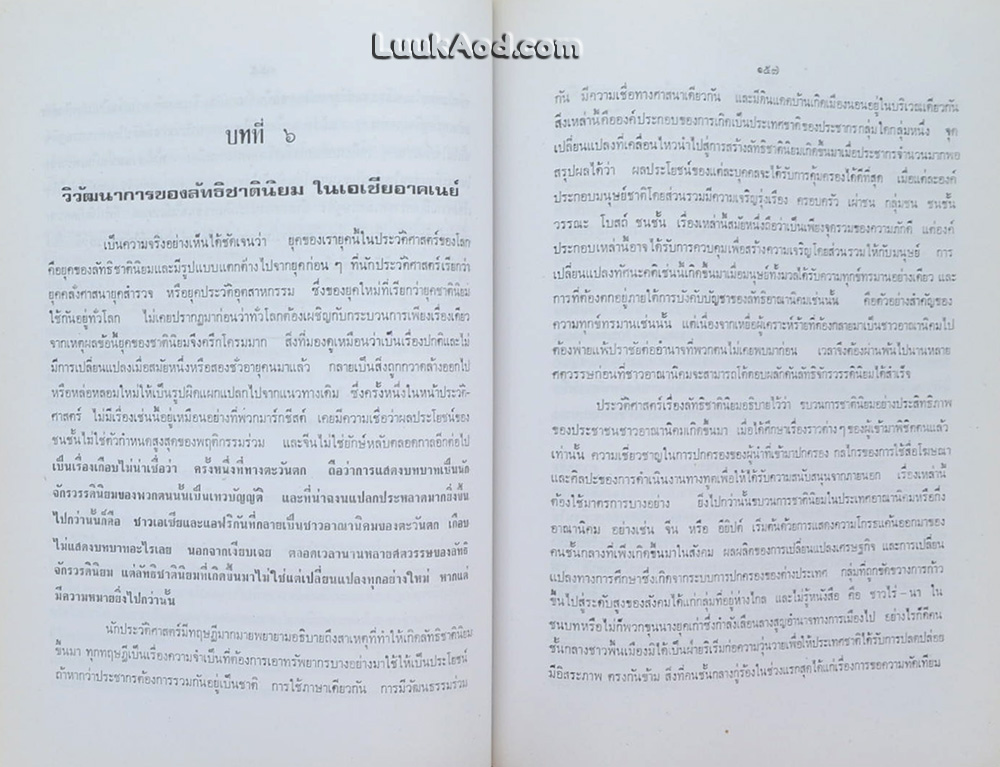 LuukAod.com
บทที่ ๖
วิวัฒนาการของลัทธิชาตินิยม ในเอเซียอาคเนย์
เป็นความจริงอย่างเห็นได้ชัดเจนว่า ยุคของเรายุคนี้ในประวัติศาสตร์ของโลก
คือยุคของลัทธิชาตินิยมและมีรูปแบบแตกต่างไปจากยุคก่อน ๆ ที่นักประวัติศาสตร์เรียกว่า
ยุคคลั่งศาสนายุคสำรวจ หรือยุคประวัติอุตสาหกรรม ซึ่งของยุคใหม่ที่เรียกว่ายุคชาตินิยม
ใช้กันอยู่ทั่วโลก ไม่เคยปรากฏมาก่อนว่าทั่วโลกต้องเผชิญกับกระบวนการเพียงเรื่องเดียว
จากเหตุผลข้อนี้ยุคของชาตินิยมจึงครึกโครมมาก สิ่งที่มองดูเหมือนว่าเป็นเรื่องปกติและไม่
มีการเปลี่ยนแปลงเมื่อสมัยหนึ่งหรือสองชั่วอายุคนมาแล้ว กลายเป็นสิ่งถูกกวาดล้างออกไป
หรือหล่อหลอมใหม่ให้เป็นรูปผิดแผกแปลกไปจากแนวทางเดิม ซึ่งครั้งหนึ่งในหน้าประวัติ-
ศาสตร์ ไม่มีเรื่องเช่นนี้อยู่เหมือนอย่างที่พวกมาร์กซีสต์ เคยมีความเชื่อว่าผลประโยชน์ของ
ชนชั้นไม่ใช่ตัวกำหนดสูงสุดของพฤติกรรมร่วม และจีนไม่ใช่ยักษ์หลับตลอดกาลอีกต่อไป
เป็นเรื่องเกือบไม่น่าเชื่อว่า ครั้งหนึ่งที่ทางตะวันตก ถือว่าการแสดงบทบาทเป็นนัก
จักรวรรดินิยมของพวกตนนั้นเป็นเทวบัญญัติ และที่น่าฉงนแปลกประหลาดมากยิ่งขึ้น
ไปกว่านั้นก็คือ ชาวเอเซียและแอฟริกันที่กลายเป็นชาวอาณานิคมของตะวันตก เกือบ
ไม่แสดงบทบาทอะไรเลย นอกจากเงียบเฉย ตลอดเวลานานหลายศตวรรษของลัทธิ
จักรวรดินิยม แต่ลัทธิชาตินิยมที่เกิดขึ้นมาไม่ใช่แต่เปลี่ยนแปลงทุกอย่างใหม่ หากแต่
มีความหมายยิ่งไปกว่านั้น
นักประวัติศาสตร์มีทฤษฎีมากมายพยายามอธิบายถึงสาเหตุที่ทำให้เกิดลัทธิชาตินิยม
ขึ้นมา ทุกทฤษฎีเป็นเรื่องความจำเป็นที่ต้องการเอาทรัพยากรบางอย่างมาใช้ให้เป็นประโยชน์
ถ้าหากว่าประชากรต้องการรวมกันอยู่เป็นชาติ การใช้ภาษาเดียวกัน การมีวัฒนธรรมร่วม
๑๕๗
กัน มีความเชื่อทางศาสนาเดียวกัน และมีดินแดนบ้านเกิดเมืองนอนอยู่ในบริเวณเดียวกัน
สิ่งเหล่านี้คือองค์ประกอบของการเกิดเป็นประเทศชาติของประชากรกลุ่มใดกลุ่มหนึ่ง จุด
เปลี่ยนแปลงที่เคลื่อนไหวนำไปสู่การสร้างลัทธิชาตินิยมเกิดขึ้นมาเมื่อประชากรจำนวนมากพอ
สรุปผลได้ว่า ผลประโยชน์ของแต่ละบุคคลจะได้รับการคุ้มครองได้ดีที่สุด เมื่อแต่ละองค์
ประกอบมนุษย์ชาติโดยส่วนรวมมีความเจริญรุ่งเรือง ครอบครัว เผ่าชน กลุ่มชน ชนชั้น
วรรณะ โบสถ์ ชนชั้น เรื่องเหล่านี้สมัยหนึ่งถือว่าเป็นเพียงจุดรวมของความภักดี แต่องค์
ประกอบเหล่านี้อาจได้รับการควบคุมเพื่อสร้างความเจริญโดยส่วนรวมให้กับมนุษย์ การ
เปลี่ยนแปลงทัศนะคติเช่นนี้เกิดขึ้นมาเมื่อมนุษย์ทั้งมวลได้รับความทุกข์ทรมานอย่างเดียว และ
การที่ต้องตกอยู่ภายใต้การบังคับบัญชาของลัทธิอาณานิคมเช่นนั้น คือตัวอย่างสำคัญของ
ความทุกข์ทรมานเช่นนั้น แต่เนื่องจากเหยื่อผู้เคราะห์ร้ายที่ต้องกลายมาเป็นชาวอาณานิคมไป
ต้องพ่ายแพ้ปราชัยต่ออำนาจที่พวกตนไม่เคยพบมาก่อน เวลาจึงต้องผ่านพ้นไปนานหลาย
ศตวรรษก่อนที่ชาวอาณานิคมจะสามารถโต้ตอบผลักดันลัทธิจักรวรรดินิยมได้สำเร็จ
ประวัติศาสตร์เรื่องลัทธิชาตินิยมอธิบายไว้ว่า ขบวนการชาตินิยมอย่างประสิทธิภาพ
ของประชาชนชาวอาณานิคมเกิดขึ้นมา เมื่อได้ศึกษาเรื่องราวต่างๆของผู้เข้ามาพิชิตตนแล้ว
เท่านั้น ความเชี่ยวชาญในการปกครองของผู้นำที่เข้ามาปกครอง กลไกรของการใช้สื่อโฆษณา
และศิลปะของการดำเนินงานทางทูตเพื่อให้ได้รับความสนับสนุนจากภายนอก เรื่องเหล่านี้
ต้องใช้มาตรการบางอย่าง ยิ่งไปกว่านั้นขบวนการชาตินิยมในประเทศอาณานิคมหรือกึ่ง
อาณานิคม อย่างเช่น จีน หรือ อียิปต์ เริ่มต้นด้วยการแสดงความโกรธแค้นออกมาของ
คนชั้นกลางที่เพิ่งเกิดขึ้นมาในสังคม ผลผลิตของการเปลี่ยนแปลงเศรษฐกิจ และการเปลี่ยน
แปลงทางการศึกษาซึ่งเกิดจากระบบการปกครองของต่างประเทศ กลุ่มที่ถูกขัดขวางการก้าว
ขึ้นไปสู่ระดับสูงของสังคมได้แก่กลุ่มที่อยู่ห่างไกล และไม่รู้หนังสือ คือ ชาวไร่-นา ใน
ชนบทหรือไม่ก็พวกขุนนางยุคเก่าซึ่งกำลังเลือนลางสูญอำนาจทางการเมืองไป อย่างไรก็ดีคน
ชั้นกลางชาวพื้นเมืองมิได้เป็นฝ่ายริเริ่มก่อความวุ่นวายเพื่อให้ประเทศชาติได้รับการปลดปล่อย
มีอิสระภาพ ตรงกันข้าม สิ่งที่คนชั้นกลางกู่ร้องในช่วงแรกสุดได้แก่เรื่องการขอความทัดเทียม